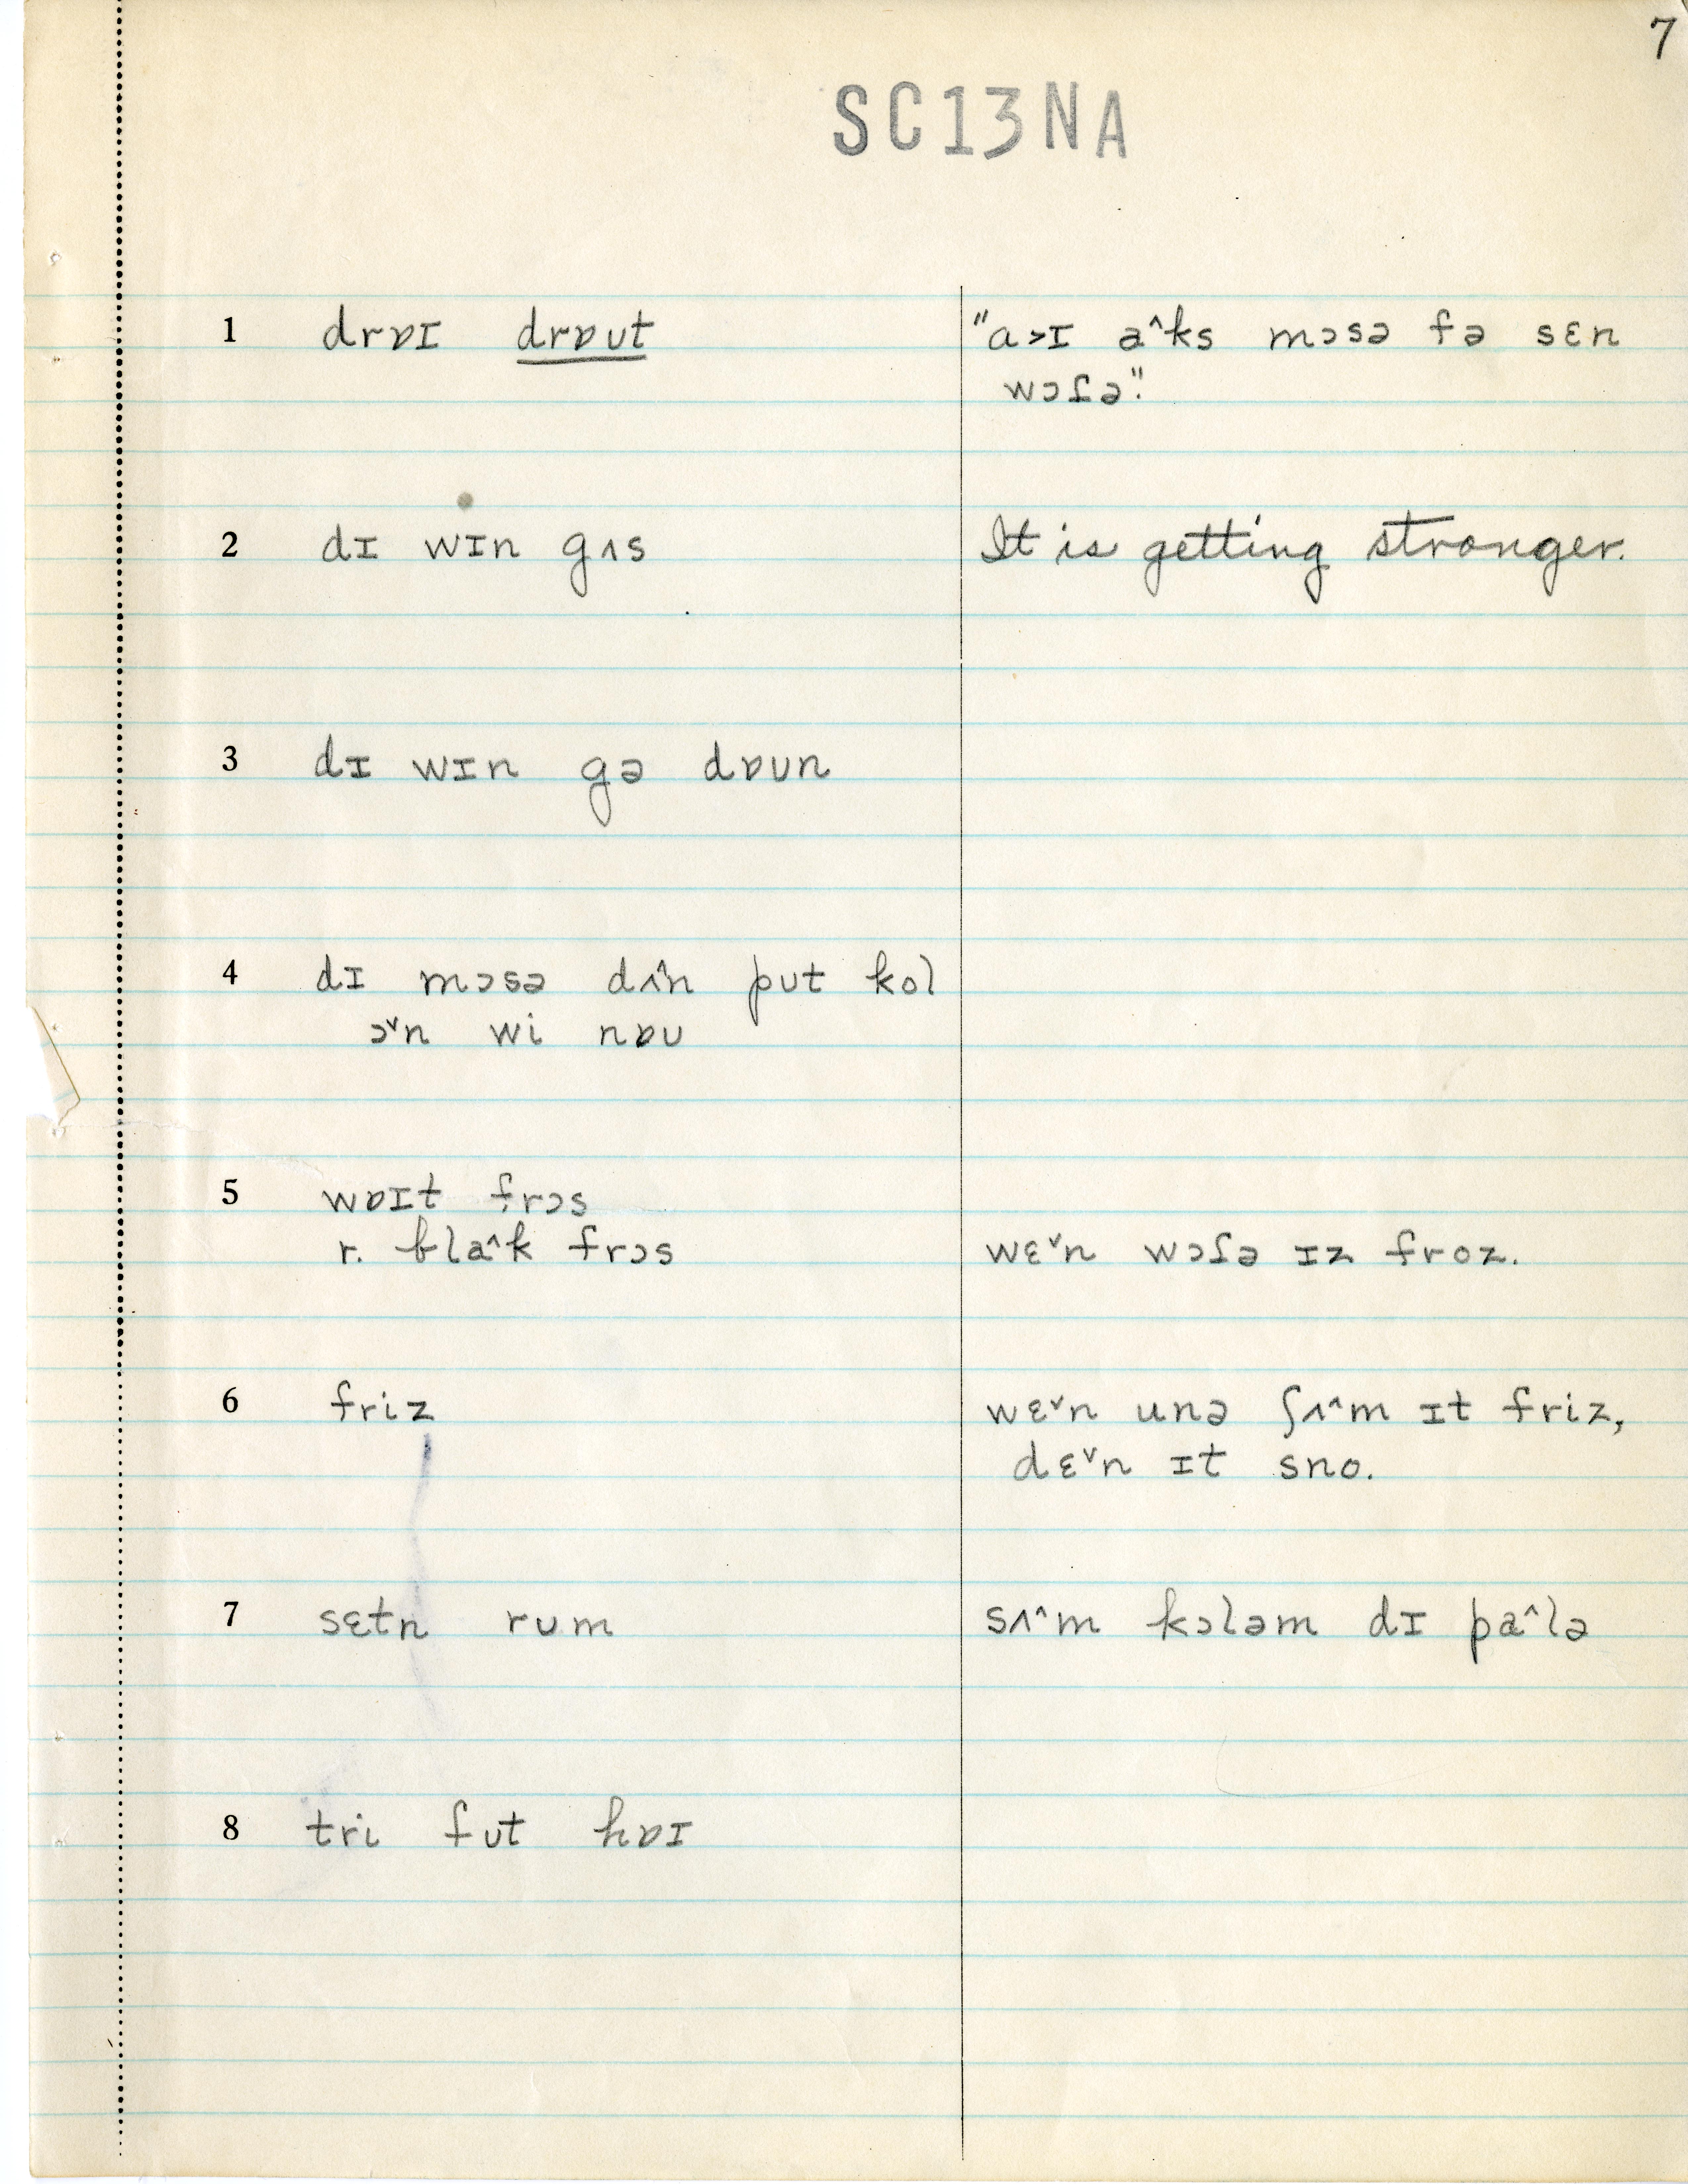 7
SC13NA
1 drɒɪ drɒʊt "a˃ɪ a^ks mɔsə fə sɛn
wɔɾə".
2 dɪ wɪn gʌs It is getting stronger.
3 dɪ wɪn gə dɒʊn
4 dɪ mɔsə dʌ^n pʊt kol
ɔ˅n wi nɒʊ
5 wɒɪt frɔs
r. bla^k frɔs wɛ˅n wɔɾə ɪz froz.
6 friz wɛ˅n unə ʃʌ^m ɪt friz,
dɛ˅n ɪt sno.
7 sɛtn rum sʌ^m kɔləm dɪ pa^lə
8 tri fʊt hɒɪ